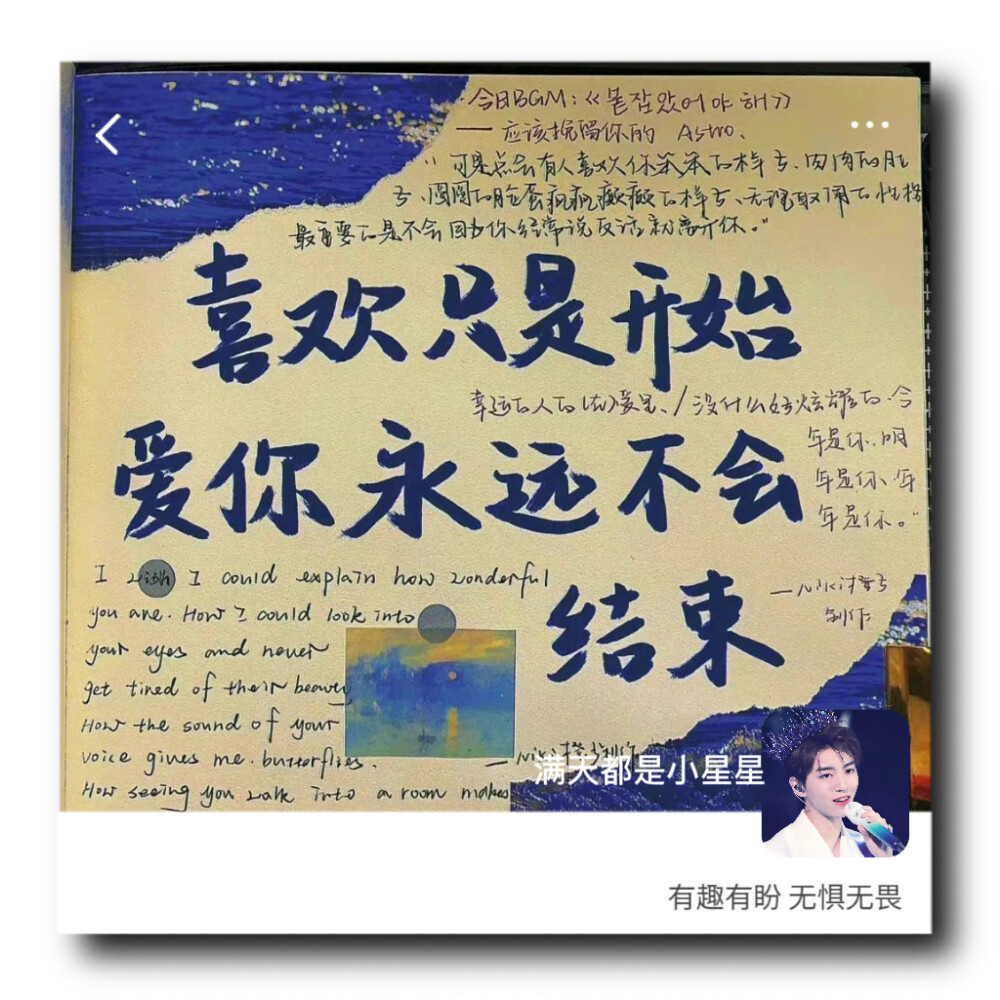 今日BGM:《붙잡았어야 해》
——应该挽留你的 Astro.
"可是总会有人喜欢你笨笨的样子、肉肉的肚
子、圆圆的脸蛋疯疯癫癫的样子、无理取闹的性格
最重要的是不会因为你经常说反话就离开你。"
喜欢只是开始
幸运的人的 爱是、/没什么好炫耀的、今
年是你、明
年是你、年
年是你。"
爱你永远不会
结束
I wish I could explain how wonderful
you are. How I could look into
your eyes and never
get tired of their beauty
How the sound of your
voice gives me butterflies.
How seeing you walk into a room makes
制作
满天都是小星星
有趣有盼 无惧无畏